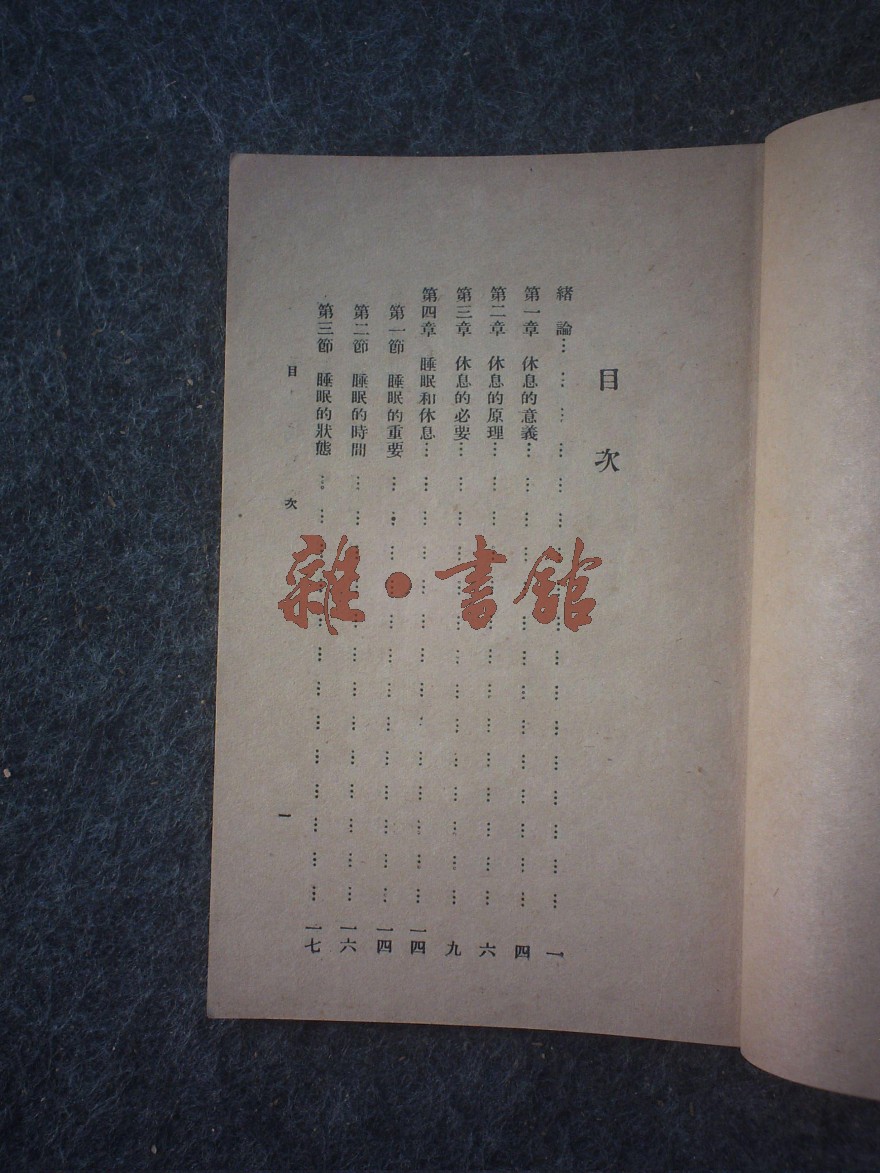 目次
緒論… … … … … … … … … … … … … … … … 一
第一章 休息的意義… … … … … … … … … … … … … … 四
第二章 休息的原理… … … … … … … … … … … … … … 六
第三章 休息的必要… … … … … … … … … … … … … … 九
第四章 睡眠和休息… … … … … … … … … … … … … … 一四
第一節 睡眠的重要… … … … … … … … … … … … … 一四
第二節 睡眠的時間… … … … … … … … … … … … … 一六
第三節 睡眠的狀態… … … … … … … … … … … … … 一七
目次 一
雜·書館